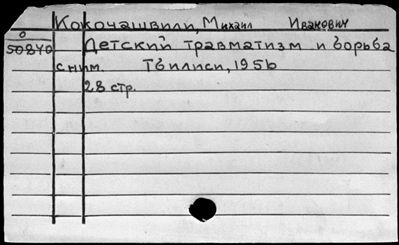 Кокочашвили, Михаил Иванович
0
50840
Детский травматизм и борьба
с ним. Тбилиси, 1956
28 стр.